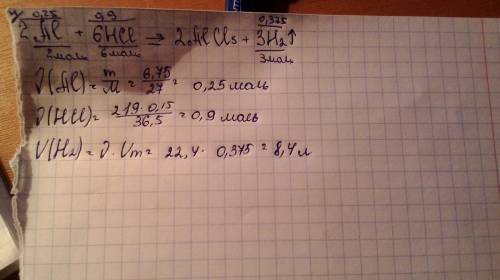 4) 0,25 0,9 0,375
2Al + 6HCl => 2AlCl₃ + 3H₂↑
2моль 6моль 3моль
ν(Al) = m/M = 6,75/27 = 0,25 моль
ν(HCl) = 219·0,15/36,5 = 0,9 моль
V(H₂) = ν·Vm = 22,4·0,375 = 8,4 л